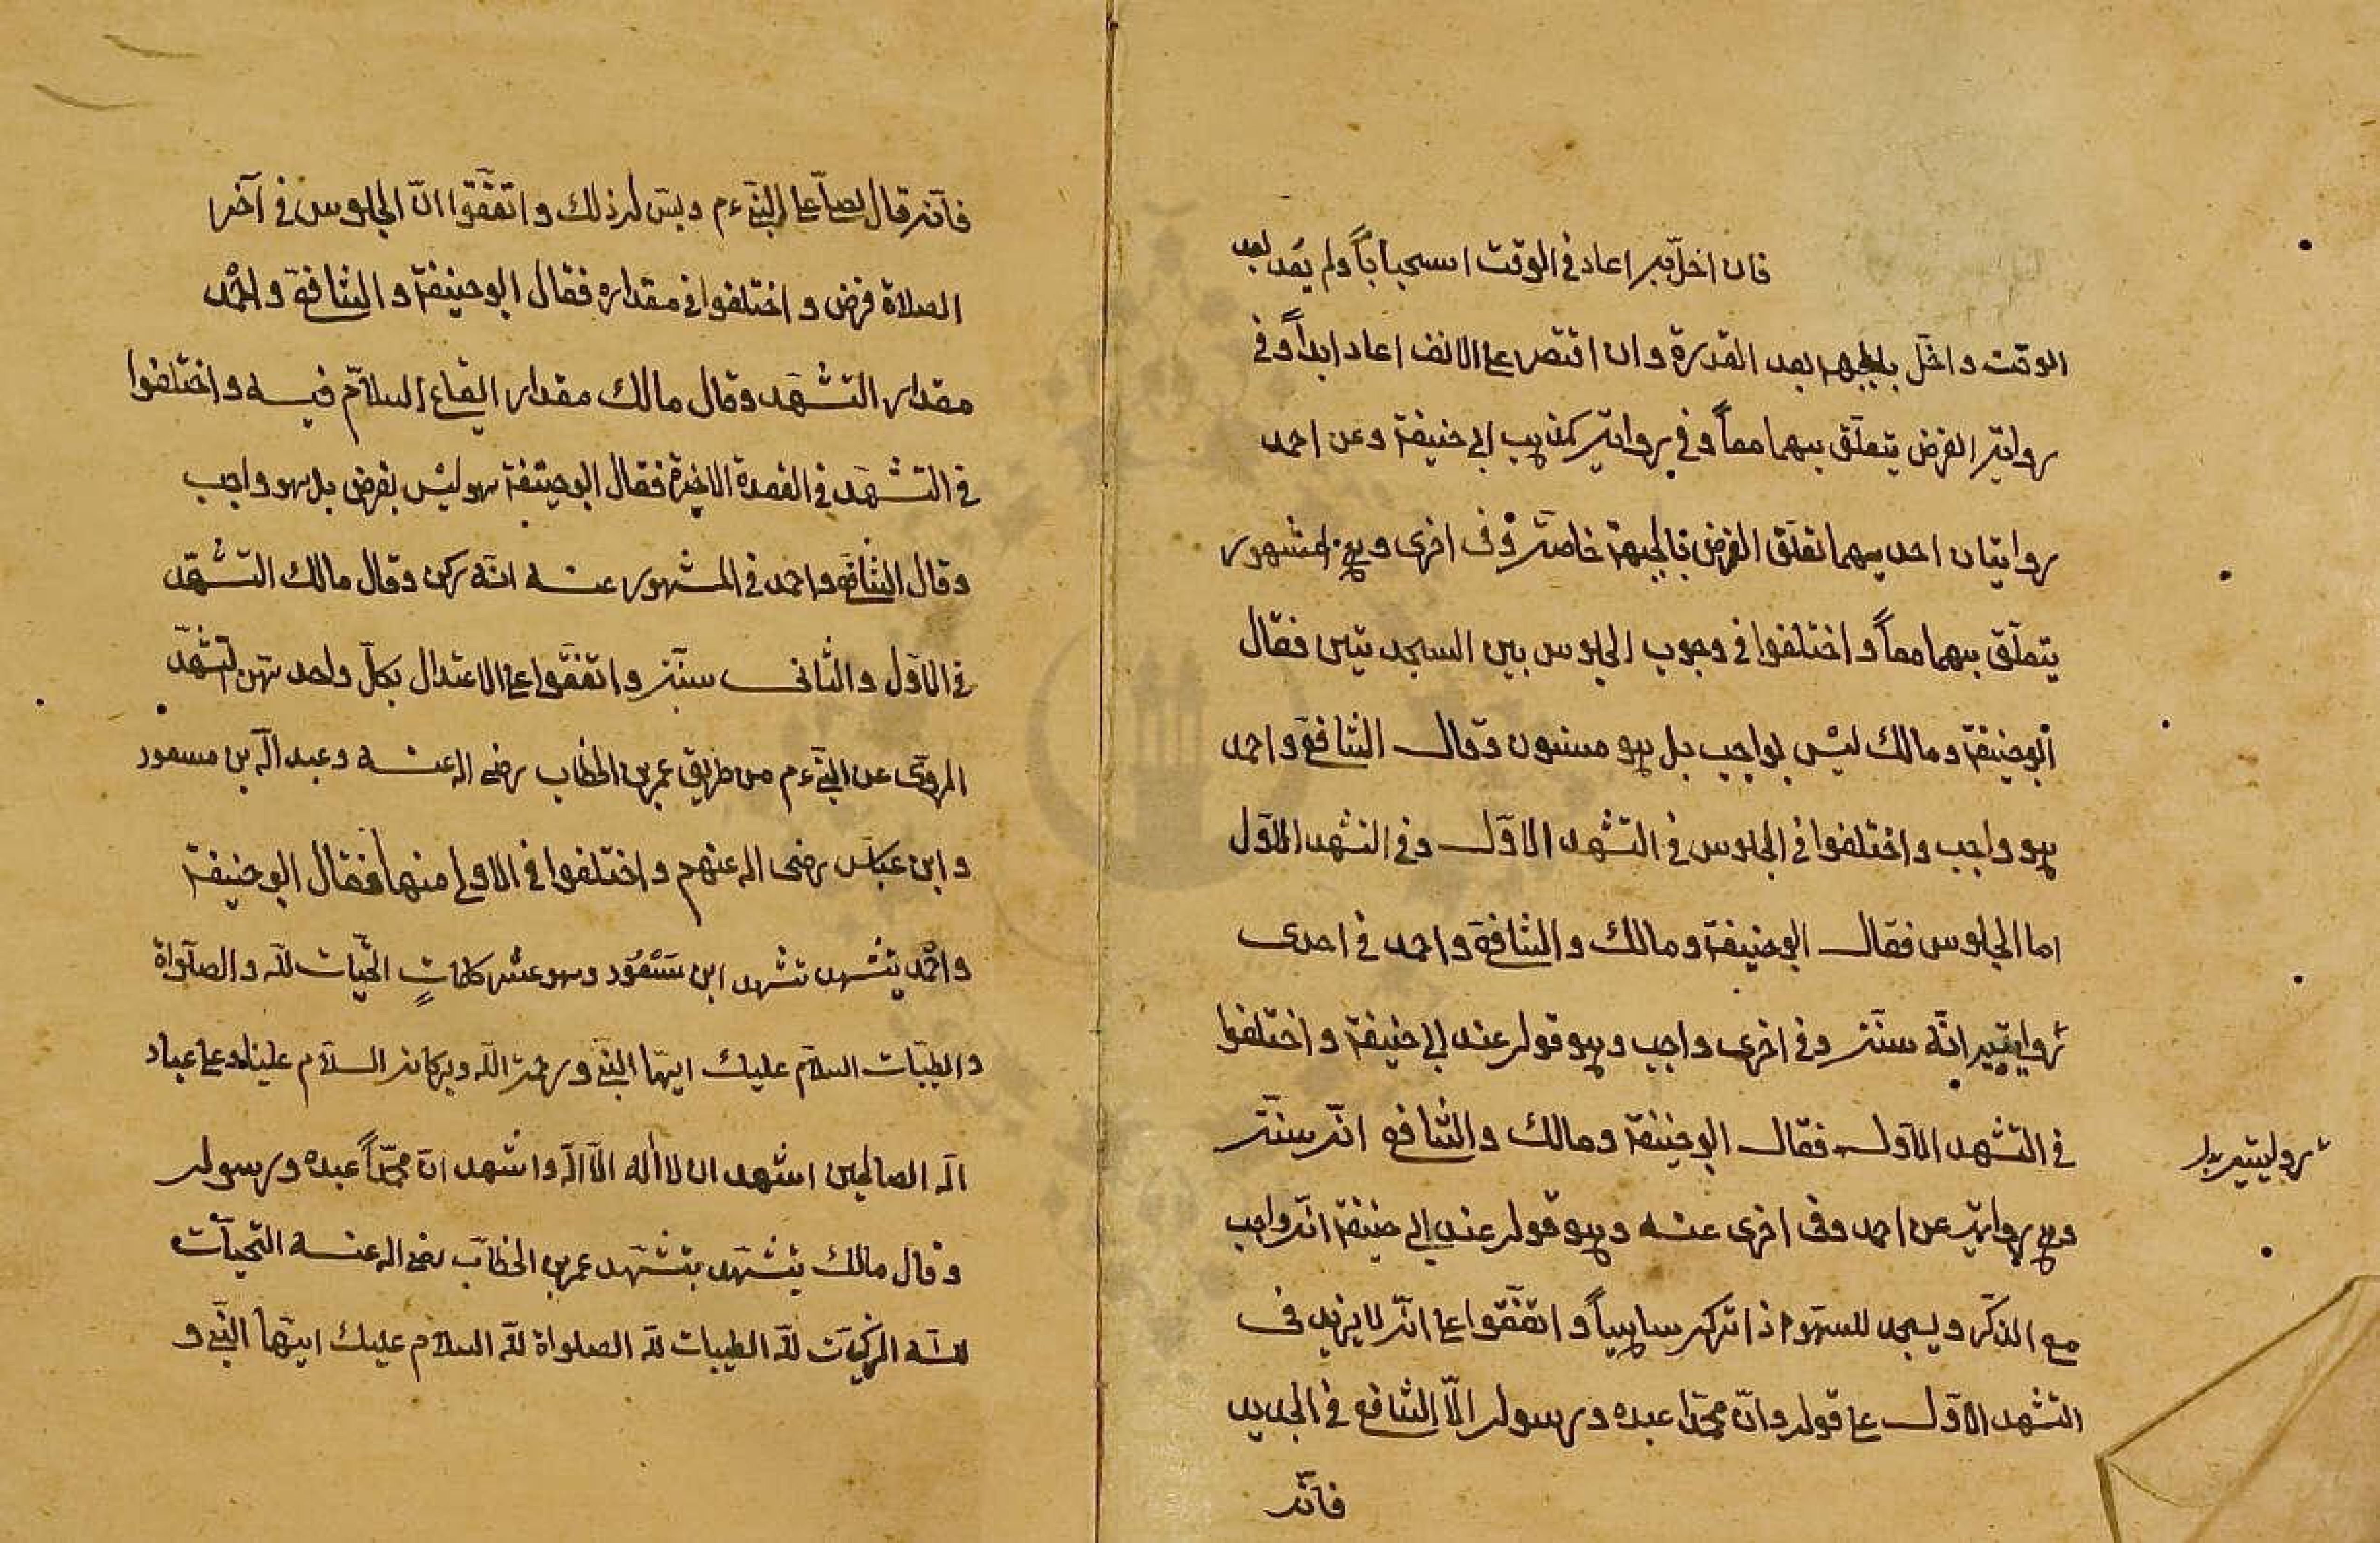 فان اخلّ به اعاد في الوقت استحباباً ولم يعد بعد
الوقت واخلّ بالجبهة بعد القدرة وان اقتصر على الانف اعاد ابداً وفي
رواية الفرض يتعلّق بهما معاً وفي رواية كمذهب ابي حنيفة وعن احمد
روايتان احديهما تعلّق الفرض بالجبهة خاصّة وفى اخرى وهي المشهور
يتعلّق بهما معاً واختلفوا في وجوب الجلوس بين السجدتين فقال
ابو حنيفة ومالك ليس بواجب بل هو مسنون وقال الشافعي واحمد
هو واجب واختلفوا في الجلوس في التشهد الاوّل وفي التشهد الاوّل
اما الجلوس فقال ابو حنيفة ومالك والشافعي واحمد في احدى
روايتيه انّه سنّة وفي اخرى واجب وهو قول عند ابي حنيفة واختلفوا
في التشهد الاوّل فقال ابو حنيفة ومالك والشافعي انّه سنّة
وهي رواية عن احمد وفى اخرى عنه وهو قول عند ابي حنيفة انّه واجب
مع الذكر ويسجد للسهو اذا تركه ساهياً واتّفقوا على انّه لا يزيد فى
التشهد الاوّل على قوله وانّ محمّدا عبده ورسوله الّا الشافعي في الجديد
فانّه
روايتيه بدل
فانّه قال يصلّي على النبي ءم ويسنّ له ذلك واتّفقوا انّ الجلوس في آخر
الصلاة فرض واختلفوا في مقداره فقال ابو حنيفة والشافعي واحمد
مقدار التشهّد وقال مالك مقدار ايقاع السلام فيه واختلفوا
في التشهّد في القعدة الاخيرة فقال ابو حنيفة هو ليس بفرض بل هو واجب
وقال الشافعي واحمد في المشهور عنه انّه ركن وقال مالك التشهّد
في الاوّل والثانى سنّة واتّفقوا على الاعتدال بكلّ واحد من التشهّد
المروى عن النبي ءم من طريق عمر بن الخطاب رضى الله عنه وعبد الله بن مسعود
وابن عباس رضى الله عنهم واختلفوا في الاولى منهما فقال ابو حنيفة
واحمد يتشهد تشهد ابن مسعود وهو عشر كلمات التحيّات للّه والصلواة
والطيّبات السلام عليك ايّها النبي ورحمة اللّه وبركاته السلام علينا وعلى عباد
الله الصالحين اشهد ان لا اله الّا الله واشهد انّ محمّداً عبده ورسوله
وقال مالك يتشهّد بتشهّد عمر بن الخطاب رضى الله عنه التحيّات
للّه الزكيات للّه الطيبات للّه الصلواة للّه السلام عليك ايّها النبي و